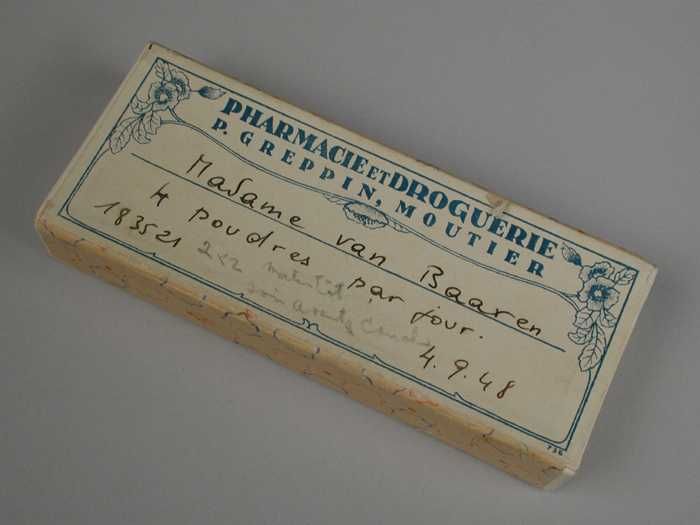 PHARMACIE ET DROGUERIE
P. GREPPIN, MOUTIER
Madame van Baaren
4 poudres par jour.
183521
2x2
4.9.48
736